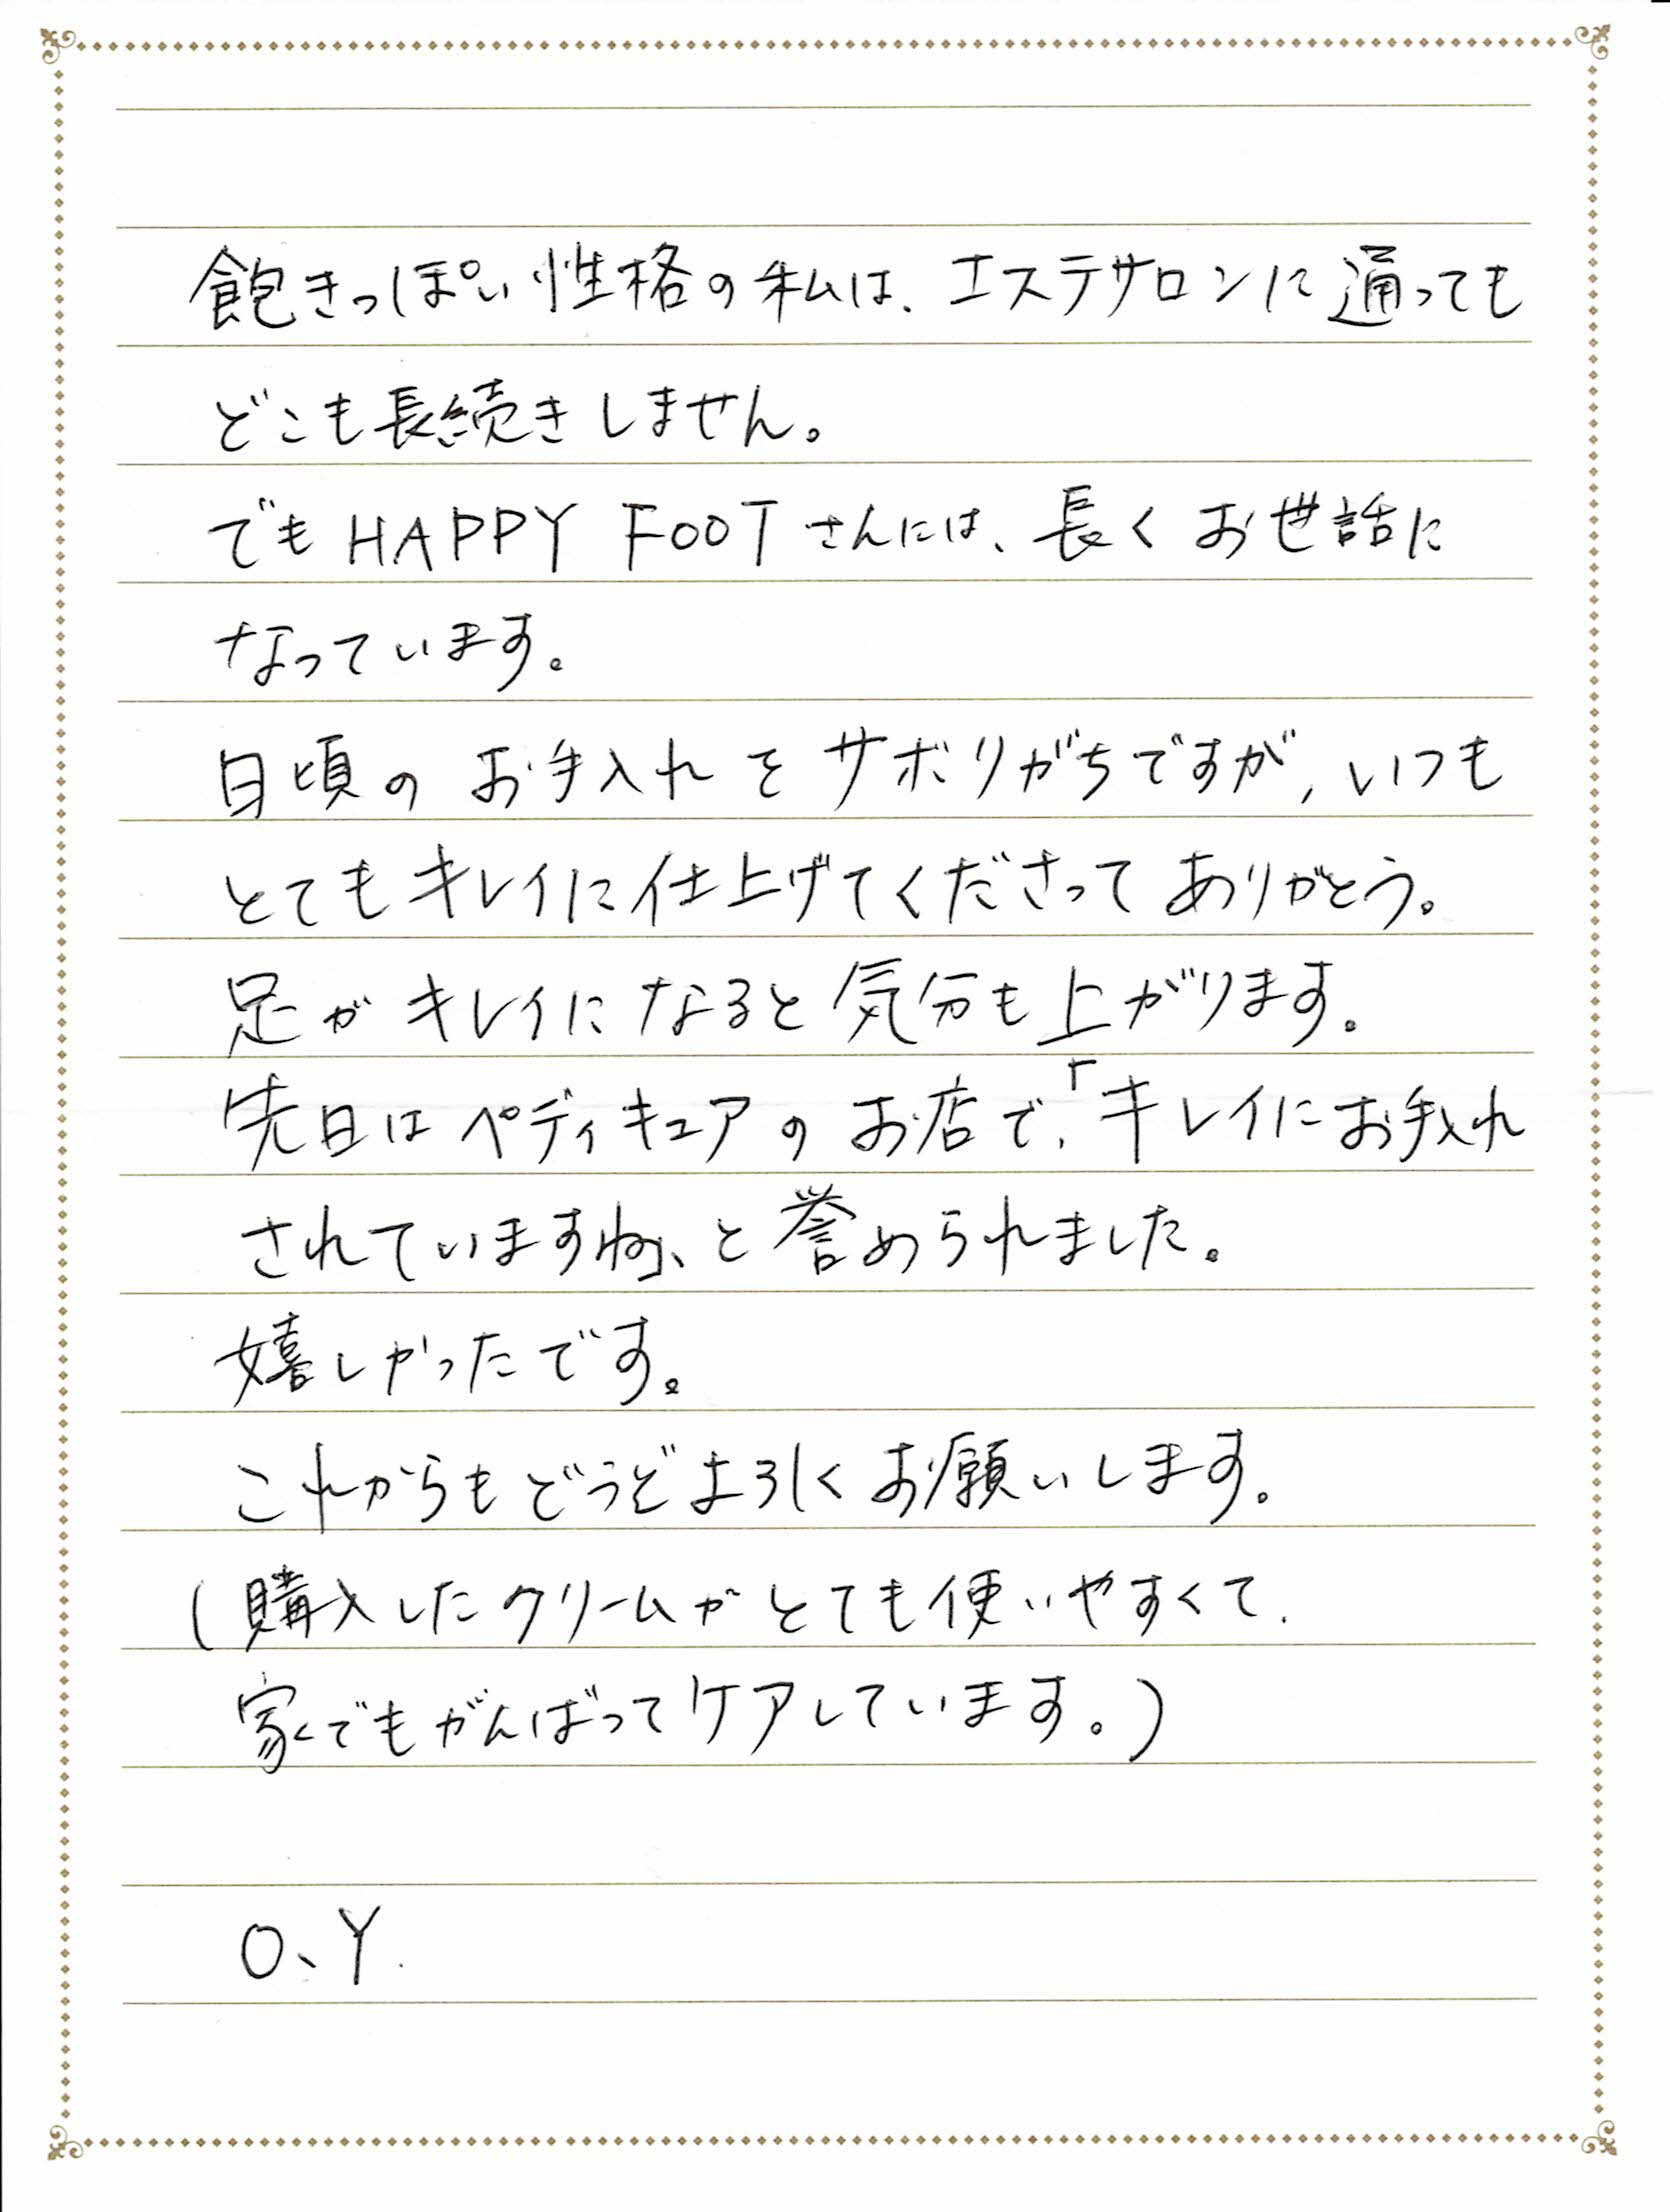 飽きっぽい性格の私は、エステサロンに通っても
どこも長続きしません。
でもHAPPY FOOTさんには、長くお世話に
なっています。
日頃のお手入れをサボりがちですが、いつも
とてもキレイに仕上げてくださってありがとう。
足がキレイになると気分も上がります。
先日はペディキュアのお店で、「キレイにお手入れ
されていますね」、と誉められました。
嬉しかったです。
これからもどうぞよろしくお願いします。
(購入したクリームがとても使いやすくて、
家でもがんばってケアしています。)
O、Y.